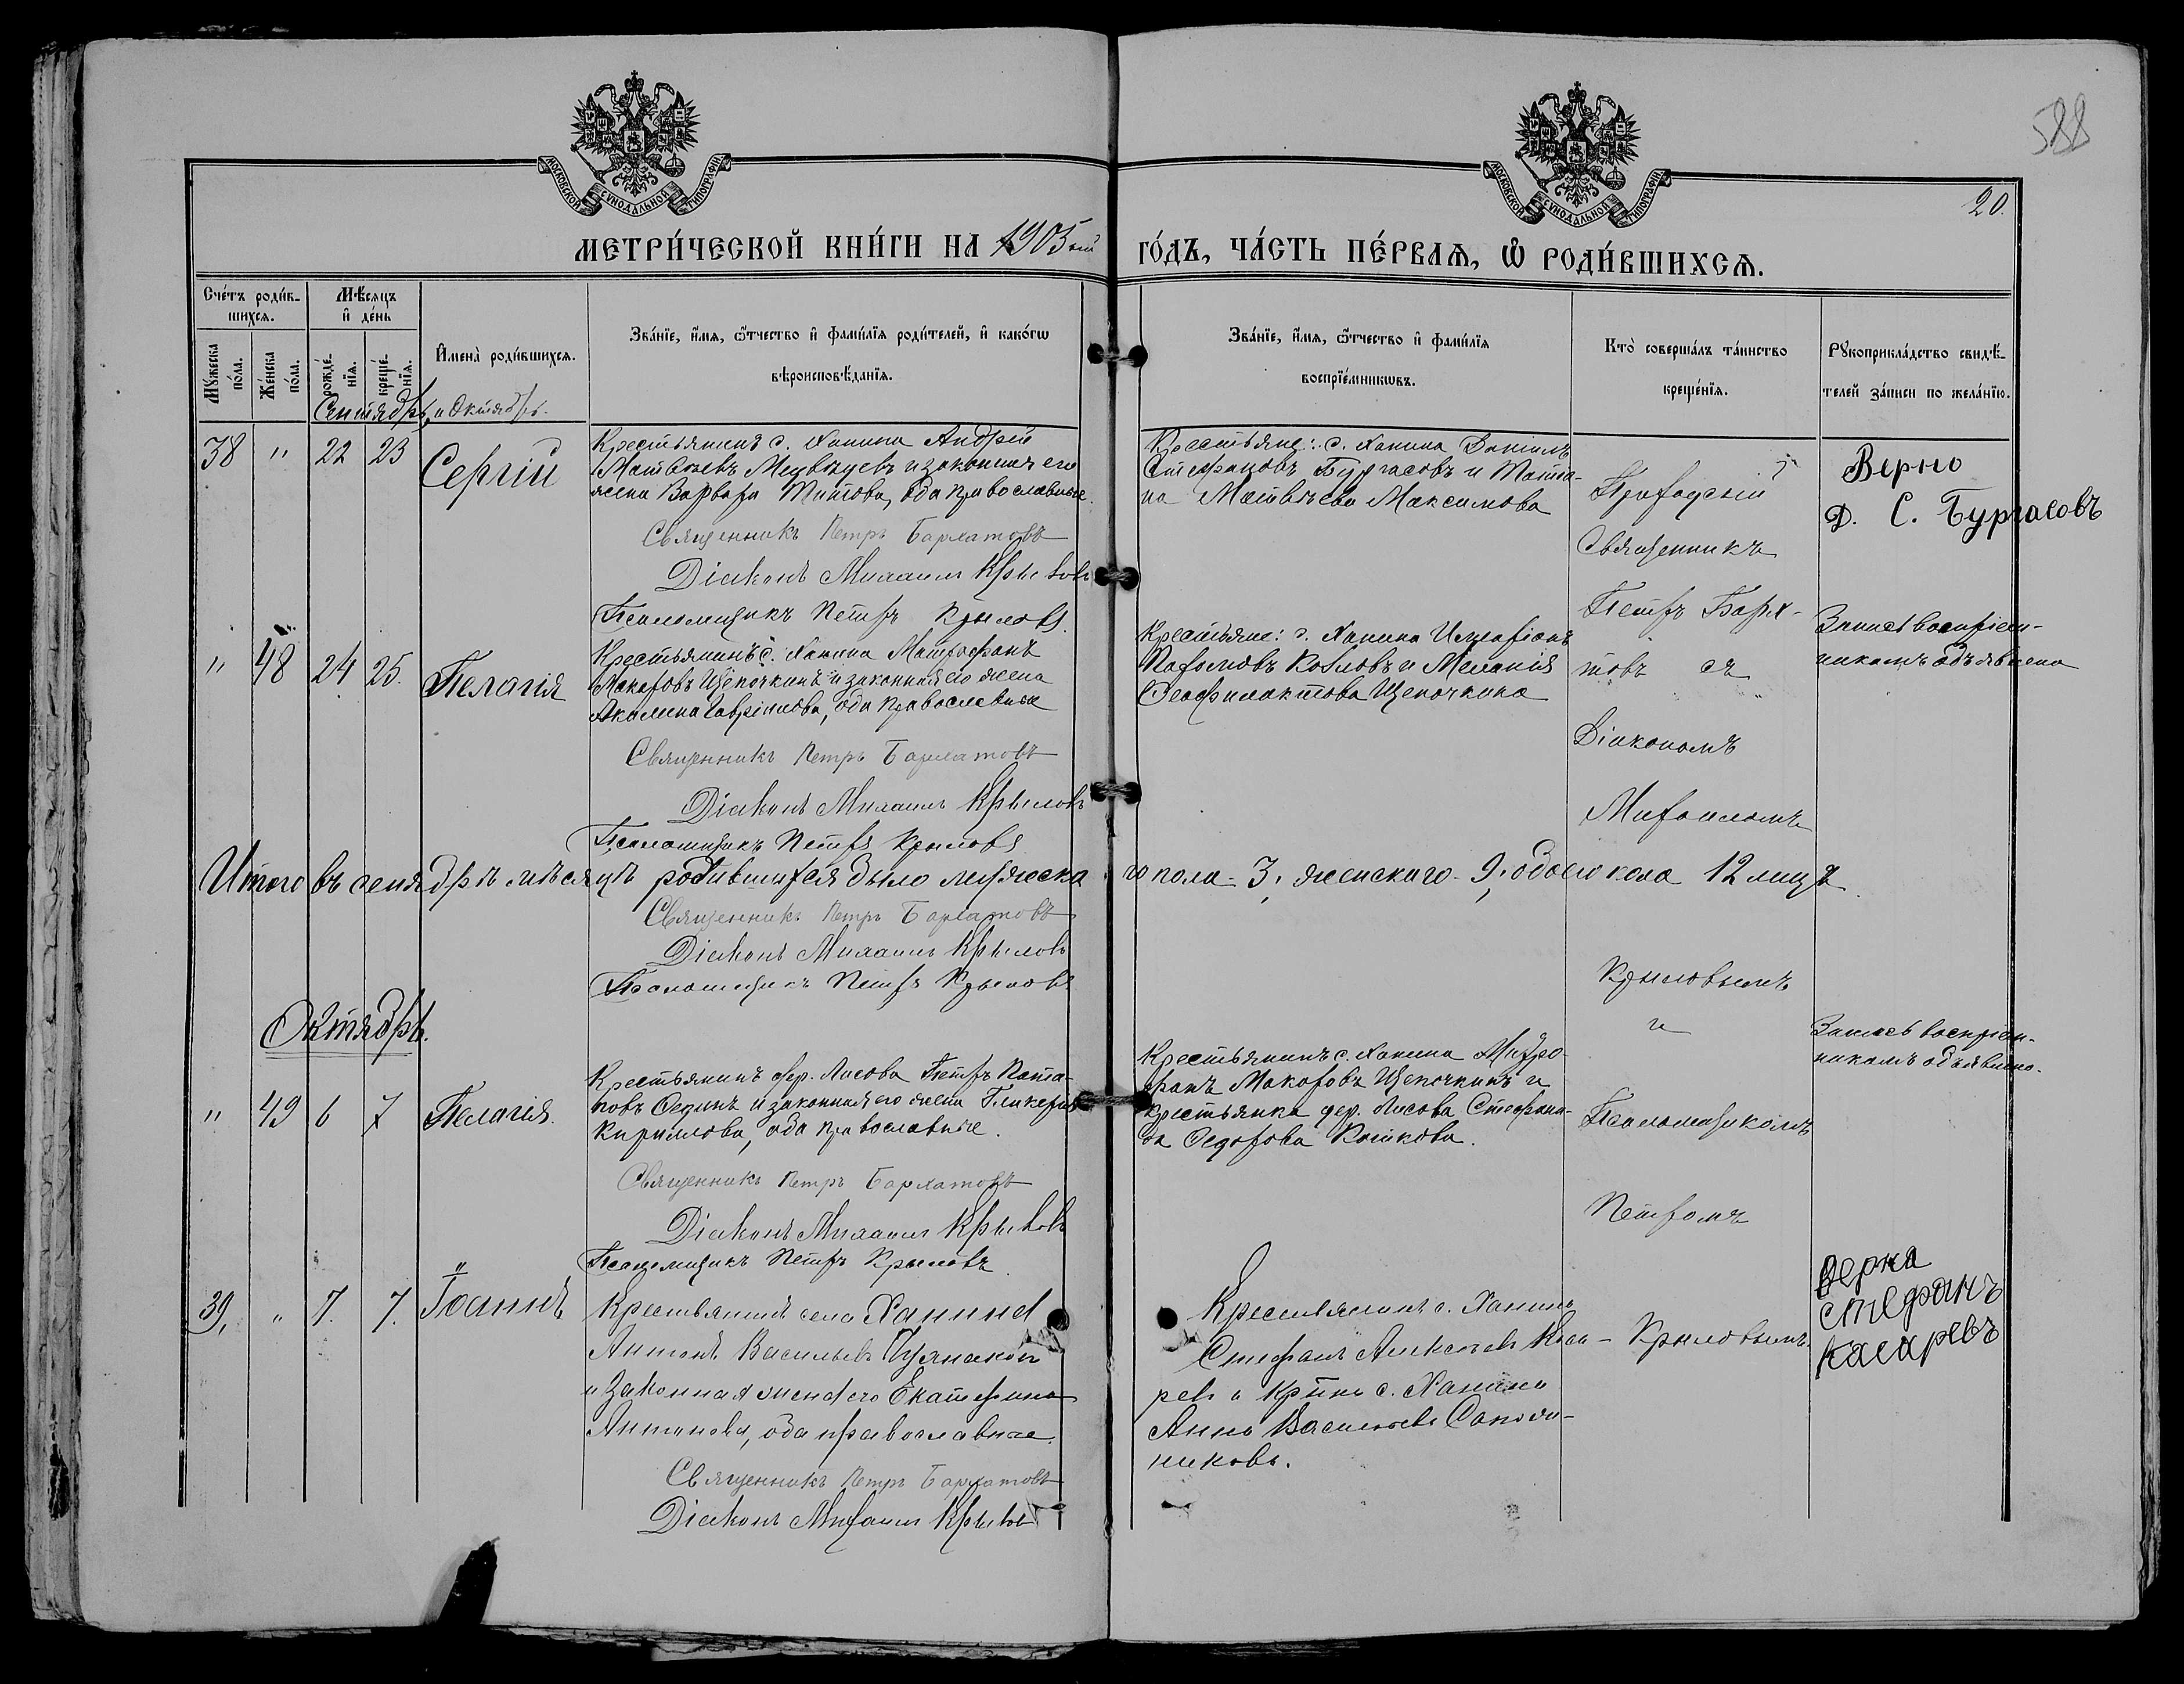 588
20.
МОСКОВСКОЙ СѴНОДАЛЬНОЙ ТИПОГРАФІИ
МОСКОВСКОЙ СѴНОДАЛЬНОЙ ТИПОГРАФІИ
МЕТРИ́ЧЕСКОЙ КНИ́ГИ НА 1905 ый ГО́ДЪ, ЧА́СТЬ ПЕ́РВАѦ, Ѽ РОДИ́ВШИХСѦ.
Сче́тъ роди́в-
шихсѧ.
Мѣ́сяцъ
и҆ де́нь
Мꙋ́жеска
по́ла.
Же́нска
по́ла.
рожде́-
нїѧ.
креще́-
нїѧ.
И҆мена̀ роди́вшихсѧ.
Зва́нїе, и҆́мѧ, ѻ҆́тчество и҆ фами́лїѧ роди́телей, и҆ како́гѡ
вѣроисповѣ́данїѧ.
Зва́нїе, и҆́мѧ, ѻ҆́тчество и҆ фами́лїѧ
воспрїе́мникѡвъ.
Кто̀ соверша́лъ та́инство
креще́нїѧ.
Рꙋкоприкла́дство свидѣ́-
телей за́писи по жела́нїю.
Сентябрь и Октябрь.
38 " 22 23 Сергій
Крестьянинъ с. Ханина Андрей
Матвѣевъ Медвѣдевъ и законная его
жена Варвара Титова, оба православные.
Священникъ Петръ Бархатовъ
Діаконъ Михаилъ Крыловъ
Псаломщикъ Петръ Крыловъ.
Крестьяне: с. Ханина Даніилъ
Стефановъ Бургасовъ и Татіа-
на Матвѣева Максимова
Приходскій
Священникъ
Петръ Барха-
товъ съ
Діакономъ
Михаиломъ
Крыловымъ
и
Псаломщикомъ
Петромъ
Крыловымъ.
Верно
Д. С. Бургасовъ
" 48 24 25. Пелагія
Крестьянинъ с. Ханина Митрофанъ
Макаровъ Щепочкинъ и законная его жена
Акилина Гавріилова, оба православные
Священникъ Петръ Бархатовъ
Діаконъ Михаилъ Крыловъ
Псаломщикъ Петръ Крыловъ
Крестьяне: с. Ханина Иларіонъ
Козловъ и Меланія
Феофилактова Щепочкина
Запись воспріем-
никамъ объявлена
Итого въ сентябрѣ мѣсяцѣ родившихся было мужеска го пола - 3, женскаго - 9, обоего пола 12 лицъ.
Священникъ Петръ Бархатовъ
Діаконъ Михаилъ Крыловъ
Псаломщикъ Петръ Крыловъ
Октябрь.
" 49 6 7 Пелагія.
Крестьянинъ дер. Лисова Петръ Пота-
повъ Фединъ и законная его жена Гликерія
Кириллова, оба православные.
Священникъ Петръ Бархатовъ
Діаконъ Михаилъ Крыловъ
Псаломщикъ Петръ Крыловъ
Крестьянинъ с. Ханина Митро-
фанъ Макаровъ Щепочкинъ и
крестьянка дер. Лисова Стефани-
да Федорова
Запись воспріем-
никамъ объявлена.
39, " 7. 7. Іоаннъ
Крестьянинъ села Ханина
Антонъ Васильевъ
и законная жена его Екатерина
Антонова, оба православные.
Священникъ Петръ Бархатовъ
Діаконъ Михаилъ Крыловъ
Крестьянинъ с. Ханина
Стефанъ Алексѣевъ Каса-
ревъ и кр-нка с. Ханина
Анна Васильева Сапож-
никова.
Верна
Стефанъ
Касаревъ